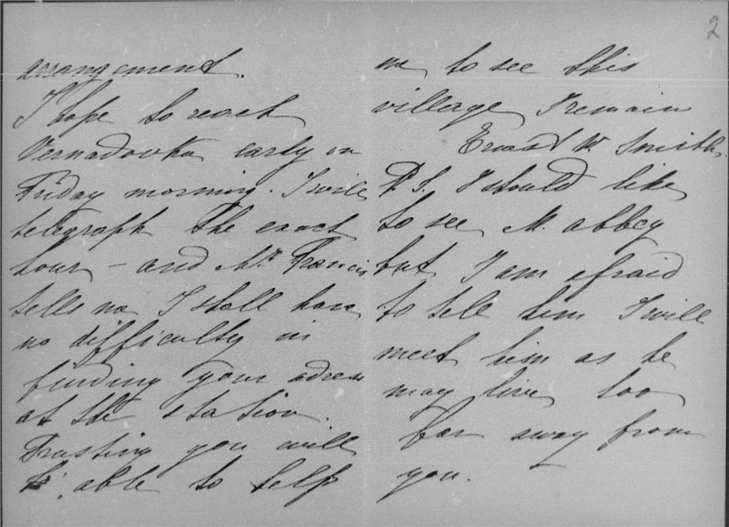 2
arrangement.
I hope to reach
Vernadovka early on
Friday morning. I will
telegraph the exact
hour – and Mr. Francis
tells me I shall have
no difficulty in
finding your adress
at the station.
Trusting you will
be able to help
me to see this
village, I remain
Ernest W Smith.
P.S. I should like
to see M. Abbey
but I am afraid
to tell him I will
meet him as he
may live too
far away from
you.